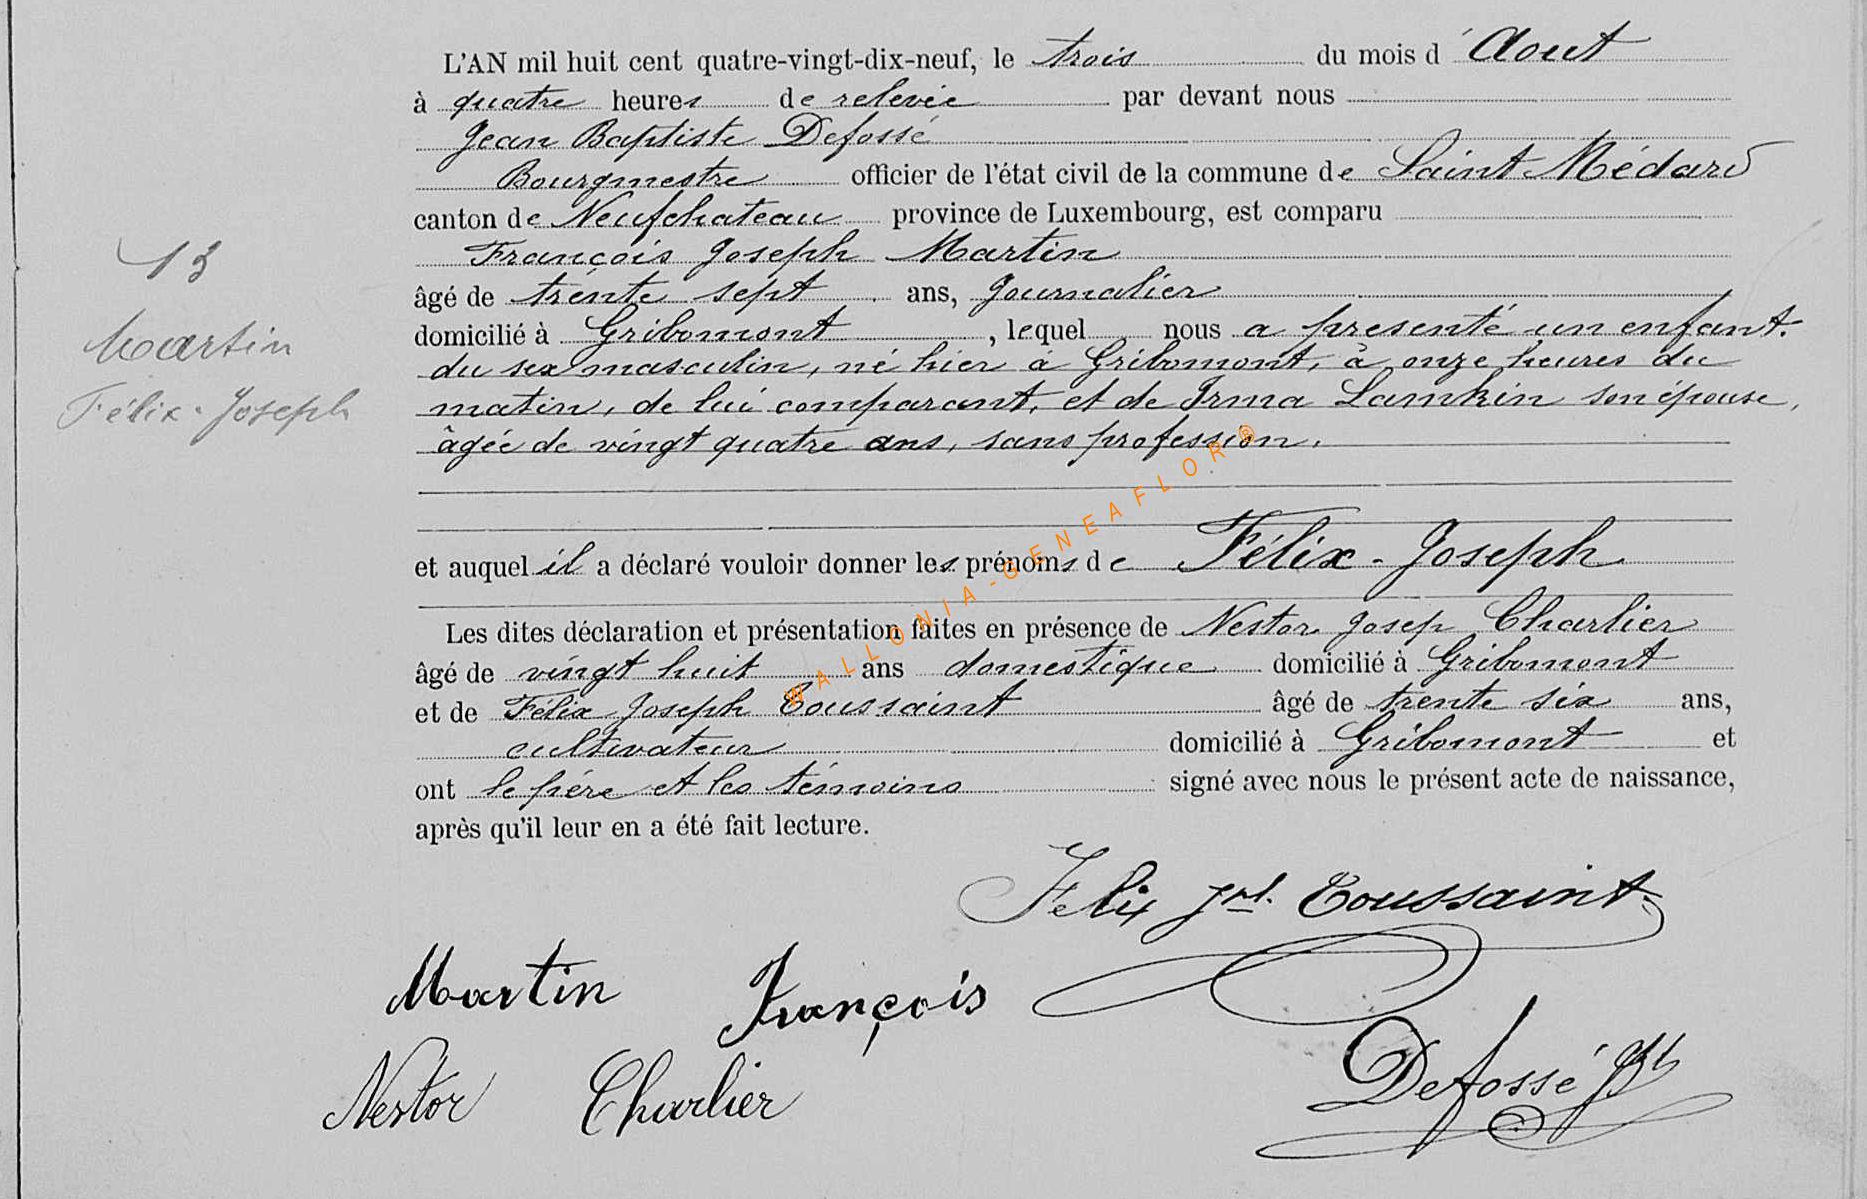 L'AN mil huit cent quatre-vingt-dix-neuf, le trois du mois d'Aout
à quatre heures de relevée par devant nous
Jean Baptiste Defossé
Bourgmestre officier de l'état civil de la commune de Saint Médard
canton de Neufchateau province de Luxembourg, est comparu
François Joseph Martin
âgé de trente sept ans, Journalier
domicilié à Gribomont, lequel nous a presenté un enfant.
du sex masculin, né hier à Gribomont, à onze heures du
matin, de lui comparant, et de Irma Lamkin son épouse,
âgée de vingt quatre ans, sans profession.
et auquel il a déclaré vouloir donner les prénoms de Félix-Joseph
Les dites déclaration et présentation faites en présence de Nestor Josep Charlier
âgé de vingt huit ans domestique domicilié à Gribomont
et de Félix Joseph Toussaint âgé de trente six ans,
cultivateur domicilié à Gribomont et
ont le père et les témoins signé avec nous le présent acte de naissance,
après qu'il leur en a été fait lecture.
13
Martin
Félix-Joseph
Felix Jph. Toussaint
Martin François
Nestor Charlier
Defossé JBt
WALLONIA-GENEAFLOR®